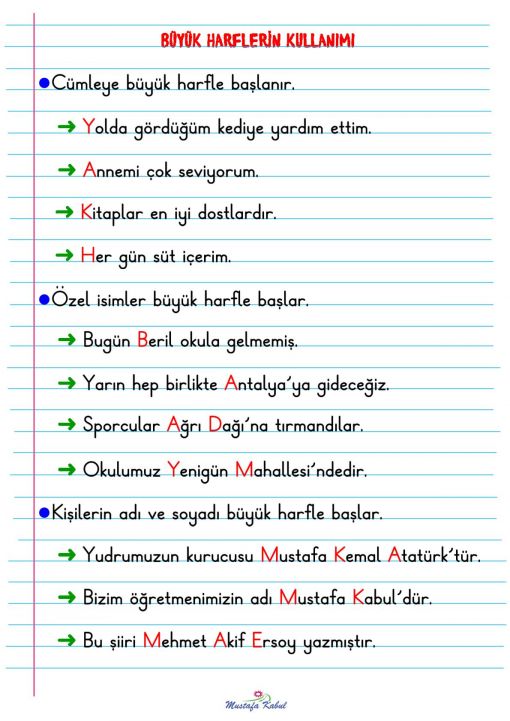 BÜYÜK HARFLERİN KULLANIMI
Cümleye büyük harfle başlanır.
Yolda gördüğüm kediye yardım ettim.
Annemi çok seviyorum.
Kitaplar en iyi dostlardır.
Her gün süt içerim.
Özel isimler büyük harfle başlar.
Bugün Beril okula gelmemiş.
Yarın hep birlikte Antalya'ya gideceğiz.
Sporcular Ağrı Dağı'na tırmandılar.
Okulumuz Yenigün Mahallesi'ndedir.
Kişilerin adı ve soyadı büyük harfle başlar.
Yudrumuzun kurucusu Mustafa Kemal Atatürk'tür.
Bizim öğretmenimizin adı Mustafa Kabul'dür.
Bu şiiri Mehmet Akif Ersoy yazmıştır.
Mustafa Kabul